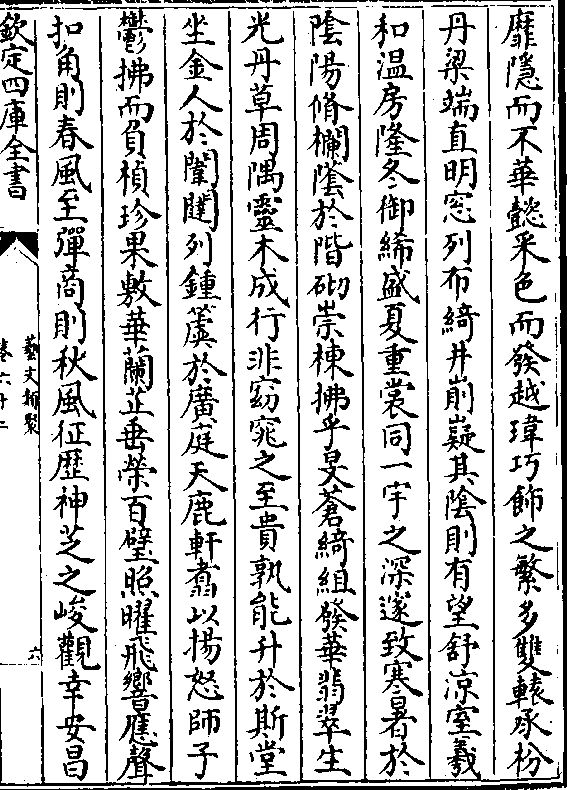 靡隱而不華懿采色而發越瑋巧飾之繁多雙轅承枌
丹梁端直明窓列布綺井崱嶷其陰則有望舒涼室羲
和温房隆冬御絺盛夏重裳同一宇之深邃致寒暑於
陰陽脩欄蔭於階砌崇棟拂乎旻蒼綺組發華翡翠生
光丹草周隅靈木成行非窈窕之至貴孰能升於斯堂
坐金人於闈闥列鍾簴於廣庭天鹿軒翥以揚怒師子
鬱拂而負楨珍果敷華蘭芷垂榮百璧照曜飛響應聲
扣角則春風至彈商則秋風征歴神芝之峻觀幸安昌
欽定四庫全書
藝文類聚
卷六十二
六